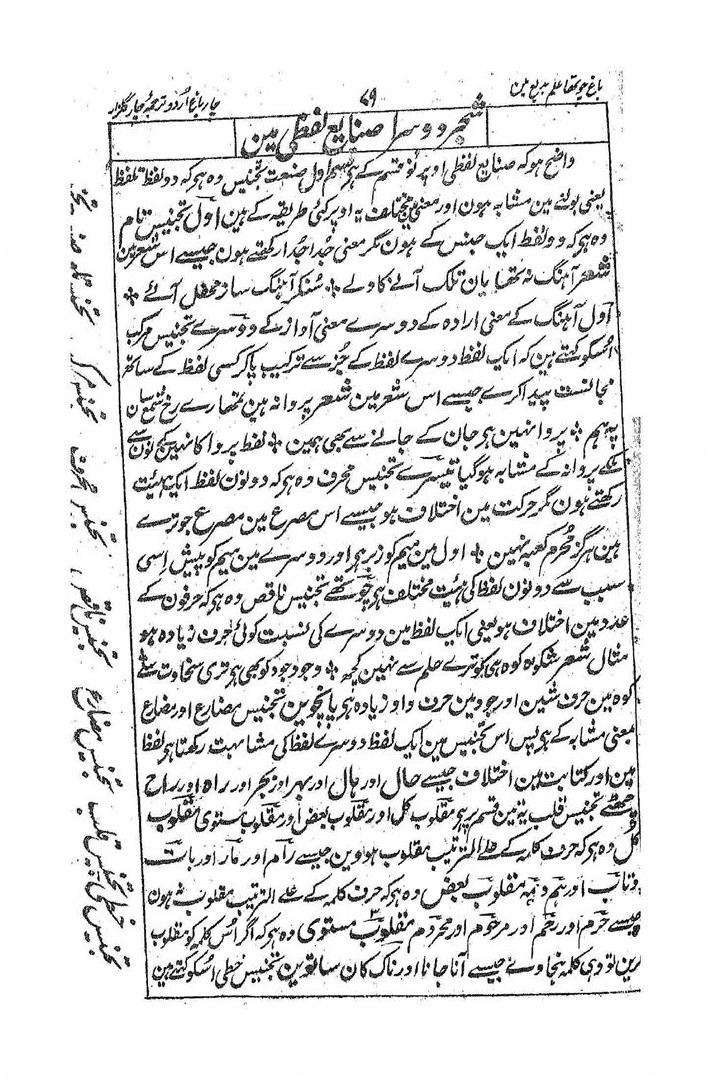 باغ چوتھا علم بدیع مین
۷۹
چار باغ اُردو ترجمۂ چار گلزار
شجر دوسرا صنایع لفظی مین
واضح ہو کہ صنایع لفظی اوپر نو قسم کے ہی قسم اول صنعت تجنیس وہ ہی کہ دو لفظ تلفظ
یعنی بولنے مین مشابہ ہون اور معنی مین مختلف یہ اوپر کئی طریقہ کے ہین اول تجنیس تام
وہ ہی کہ دو لفظ ایک جنس کے ہون مگر معنی جدا جدا رکھتے ہون جیسے اس شعر مین
شعر آہنگ نہ تھا یان تلک آنے کا ولے ٭ سُنکر آہنگ ساز محفل آئے ٭
اول آہنگ کے معنی ارادہ کے دوسرے معنی آواز کے دوسرے تجنیس مرکب
اُسکو کہتے ہین کہ ایک لفظ دوسرے لفظ کے جُز سے ترکیب پا کر کسی لفظ کے ساتھ
مجانست پیدا کرے جیسے اس شعر مین شعر پروانہ ہین تمھارے رخ شمع سان
پہ ہم ٭ پروا نہین ہی جان کے جانے سے بھی ہمین ٭ لفظ پروا کا نہین کے نون سے
ملکے پروانہ کے مشابہ ہو گیا تیسرے تجنیس محرف وہ ہی کہ دونون لفظ ایک ہیئیت
رکھتے ہون مگر حرکت مین اختلاف ہو جیسے اس مصرع مین مصرع جو ترے
ہین ہرگز مُحرم کعبہ نہین ٭ اول مین میم کو زبر ہی اور دوسرے مین میم کو پیش اسی
سبب سے دونون لفظ کی ہیئت مختلف ہی چوتھے تجنیس ناقص وہ ہی کہ حرفون کے
عدد مین اختلاف ہو یعنی ایک لفظ مین دوسرے کی نسبت کوئی حرف زیادہ ہو
مثال شعر شکوہ کوہ ہی کو ترے حلم سے نہین کچھ ٭ وجود جود کو بھی ہی تری سخاوت سے
کوہ مین حرف شین اور جود مین حرف واو زیادہ ہی پانچوین تجنیس مضارع اور مضارع
بمعنی مشابہ کے ہی پس اس تجنیس مین ایک لفظ دوسرے لفظ کی مشابہت رکھتا ہی لفظ
مین اور کتابت مین اختلاف جیسے حال اور ہال اور بہر اور بحر اور راہ اور راح
چھٹے تجنیس قلب یہ تین قسم پر ہی مقلوب کل اور مقلوب بعض اور مقلوب مستوی مقلوب
کل وہ ہی کہ حرف کلمہ کے علے الترتیب مقلوب ہووین جیسے رام اور مار اور بات
وتاب اور ہم ومہ مقلوب بعض وہ ہی کہ حرف کلمہ کے علے الترتیب مقلوب نہون
جیسے اور مرحوم اور محروم مقلوب مستوی وہ ہی کہ اگر اُس کلمہ کو مقلوب
کرین تو وہی کلمہ بنجاوے جیسے آنا جانا اور ناک کان ساتوین تجنیس خطی اُسکو کہتے ہین
تجنیس مرکب
تجنیس محرف
تجنیس ناقص
تجنیس مضارع
تجنیس قلب
تجنیس خطی